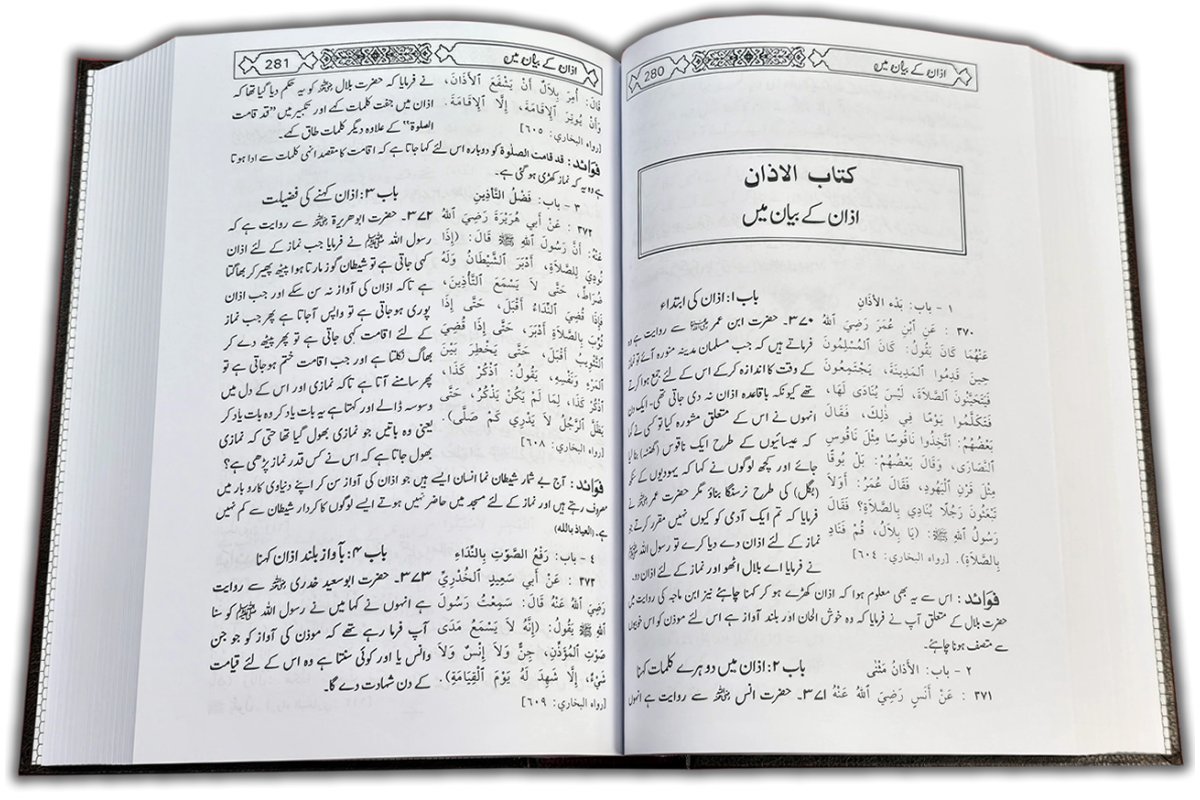 280
اذان کے بیان میں
کتاب الاذان
اذان کے بیان میں
١ - باب: بَدْء الأذَانِ
٣٧٠ : عَنِ ابْنِ عُمَرَ رَضِيَ اللهُ
عَنْهُمَا كَانَ يَقُولُ: كَانَ المُسْلِمُونَ
حِينَ قَدِمُوا المَدِينَةَ، يَجْتَمِعُونَ
فَيَتَحَيَّنُونَ الصَّلاَةَ، لَيْسَ يُنَادَى لَهَا،
فَتَكَلَّمُوا يَوْمًا فِي ذٰلِكَ، فَقَالَ
بَعْضُهُمْ: اتَّخِذُوا نَاقُوسًا مِثْلَ نَاقُوسِ
النَّصَارَى، وَقَالَ بَعْضُهُمْ: بَلْ بُوقًا
مِثْلَ قَرْنِ الْيَهُودِ، فَقَالَ عُمَرُ: أَوَلاَ
تَبْعَثُونَ رَجُلًا يُنَادِي بِالصَّلاَةِ؟ فَقَالَ
رَسُولُ اللهِ ﷺ: (يَا بِلاَلُ، قُمْ فَنَادِ
بِالصَّلاَةِ). [رواه البخاري: ٦٠٤]
باب ۱: اذان کی ابتداء
۳۷۰۔ حضرت ابن عمر رضی اللہ عنہما سے روایت ہے وہ
فرماتے ہیں کہ جب مسلمان مدینہ منورہ آئے تو نماز
کے وقت کا اندازہ کرکے اس کے لئے جمع ہوا کرتے
تھے کیونکہ باقاعدہ اذان نہ دی جاتی تھی۔ ایک دن
انہوں نے اس کے متعلق مشورہ کیا تو کسی نے کہا
کہ عیسائیوں کے طرح ایک ناقوس (گھنٹہ) بنا لیا
جائے اور کچھ لوگوں نے کہا کہ یہودیوں کے سنکھ
(بگل) کی طرح نرسنگا بناؤ مگر حضرت عمر رضی اللہ عنہ نے
فرمایا کہ تم ایک آدمی کو کیوں نہیں مقرر کرتے جو
نماز کے لئے اذان دے دیا کرے تو رسول اللہ ﷺ
نے فرمایا اے بلال اٹھو اور نماز کے لئے اذان دو۔
فوائد : اس سے یہ بھی معلوم ہوا کہ اذان کھڑے ہو کر کہنا چاہئے نیز ابن ماجہ کی روایت میں
حضرت بلال کے متعلق آپ نے فرمایا کہ وہ خوش الحان اور بلند آواز ہے اس لئے موذن کو اس خوبیوں
سے متصف ہونا چاہئے۔
٢ - باب: الأذَانُ مَثْنَى
باب ۲: اذان میں دوہرے کلمات کہنا
٣٧١ : عَنْ أَنَسٍ رَضِيَ اللهُ عَنْهُ
۳۷۱۔ حضرت انس رضی اللہ عنہ سے روایت ہے انہوں
281
اذان کے بیان میں
قَالَ: أُمِرَ بِلاَلٌ أَنْ يَشْفَعَ الأَذَانَ،
وَأَنْ يُوتِرَ الإِقَامَةَ، إِلَّا الإِقَامَةَ.
[رواه البخاري: ٦٠٥]
نے فرمایا کہ حضرت بلال رضی اللہ عنہ کو یہ حکم دیا گیا تھا کہ
اذان میں جفت کلمات کہے اور تکبیر میں "قد قامت
الصلوۃ" کے علاوہ دیگر کلمات طاق کہے۔
فوائد : قد قامت الصلوۃ کو دوبارہ اس لئے کہا جاتا ہے کہ اقامت کا مقصد انہی کلمات سے ادا ہوتا
ہے وہ یہ کہ نماز کھڑی ہو گئی ہے۔
٣ - باب: فَضْلُ التَّأْذِينِ
٣٧٢ : عَنْ أَبِي هُرَيْرَةَ رَضِيَ اللهُ
عَنْهُ: أَنَّ رَسُولَ اللهِ ﷺ قَالَ: (إِذَا
نُودِيَ لِلصَّلاَةِ، أَدْبَرَ الشَّيْطَانُ وَلَهُ
ضُرَاطٌ، حَتَّى لاَ يَسْمَعَ التَّأْذِينَ،
فَإِذَا قُضِيَ النِّدَاءُ أَقْبَلَ، حَتَّى إِذَا
ثُوِّبَ بِالصَّلاَةِ أَدْبَرَ، حَتَّى إِذَا قُضِيَ
التَّثْوِيبُ أَقْبَلَ، حَتَّى يَخْطِرَ بَيْنَ
المَرْءِ وَنَفْسِهِ، يَقُولُ: اذْكُرْ كَذَا،
اذْكُرْ كَذَا، لِمَا لَمْ يَكُنْ يَذْكُرُ، حَتَّى
يَظَلَّ الرَّجُلُ لاَ يَدْرِي كَمْ صَلَّى).
[رواه البخاري: ٦٠٨]
باب ۳: اذان کہنے کی فضیلت
۳۷۲۔ حضرت ابو ھریرۃ رضی اللہ عنہ سے روایت ہے کہ
رسول اللہ ﷺ نے فرمایا جب نماز کے لئے اذان
کہی جاتی ہے تو شیطان گوز مارتا ہوا پیٹھ پھیر کر بھاگتا
ہے تاکہ اذان کی آواز نہ سن سکے اور جب اذان
پوری ہوجاتی ہے تو واپس آجاتا ہے پھر جب نماز
کے لئے اقامت کہی جاتی ہے تو پھر پیٹھ دے کر
بھاگ نکلتا ہے اور جب اقامت ختم ہوجاتی ہے تو
پھر سامنے آتا ہے تاکہ نمازی اور اس کے دل میں
وسوسہ ڈالے اور کہتا ہے یہ بات یاد کر وہ بات یاد کر
یعنی وہ باتیں جو نمازی بھول گیا تھا حتی کہ نمازی
بھول جاتا ہے کہ اس نے کس قدر نماز پڑھی ہے؟
فوائد : آج بے شمار شیطان نما انسان ایسے ہیں جو اذان کی آواز سن کر اپنے دنیاوی کاروبار میں
مصروف رہتے ہیں اور نماز کے لئے مسجد میں حاضر نہیں ہوتے ایسے لوگوں کا کردار شیطان سے کم نہیں
ہے۔ (العیاذ باللہ)
٤ - باب: رَفْعُ الصَّوْتِ بِالنِّدَاءِ
٣٧٣ : عَنْ أَبِي سَعِيدٍ الخُدْرِيِّ
رَضِيَ اللهُ عَنْهُ قَالَ: سَمِعْتُ رَسُولَ
اللهِ ﷺ يَقُولُ: (إِنَّهُ لاَ يَسْمَعُ مَدَى
صَوْتِ المُؤَذِّنِ، جِنٌّ وَلاَ إِنْسٌ وَلاَ
شَيْءٌ، إِلَّا شَهِدَ لَهُ يَوْمَ الْقِيَامَةِ).
[رواه البخاري: ٦٠٩]
باب ۴: بآواز بلند اذان کہنا
۳۷۳۔ حضرت ابوسعید خدری رضی اللہ عنہ سے روایت
ہے انہوں نے کہا میں نے رسول اللہ ﷺ کو سنا
آپ فرما رہے تھے کہ موذن کی آواز کو جو جن
وانس یا اور کوئی سنتا ہے وہ اس کے لئے قیامت
کے دن شہادت دے گا۔